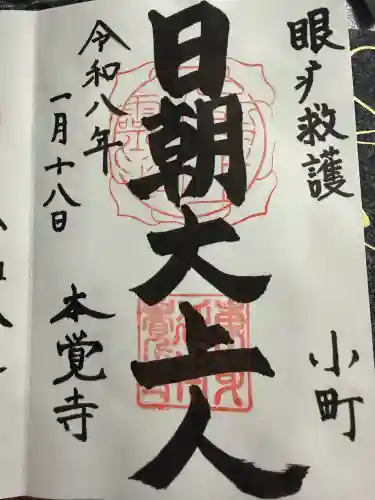 眼疾救護
小町
日朝大上人
令和八年
一月十八日
本覚寺